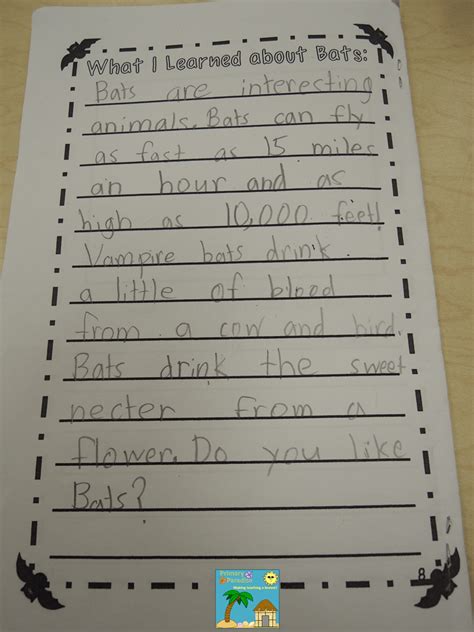 What I Learned about Bats:
Bats are interesting
animals. Bats can fly
as fast as 15 miles
an hour and as
high as 10,000 feet!
Vampire bats drink
a little of blood
from a cow and bird.
Bats drink the sweet
necter from a
flower. Do you like
Bats?
8
Primary
Paradise